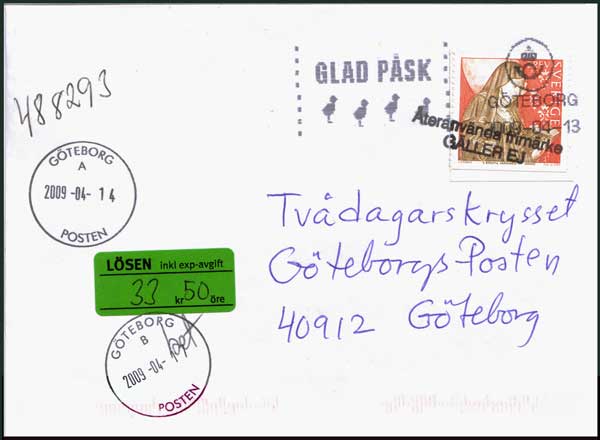 GLAD PÅSK
SVERIGE
GÖTEBORG
2009-04-13
Återanvända frimärke
GÄLLER EJ
488293
GÖTEBORG
A
2009 -04- 14
POSTEN
Tvådagarskrysset
GöteborgsPosten
40912 Göteborg
LÖSEN inkl exp-avgift
33 kr 50 öre
GÖTEBORG
B
2009 -04-
POSTEN